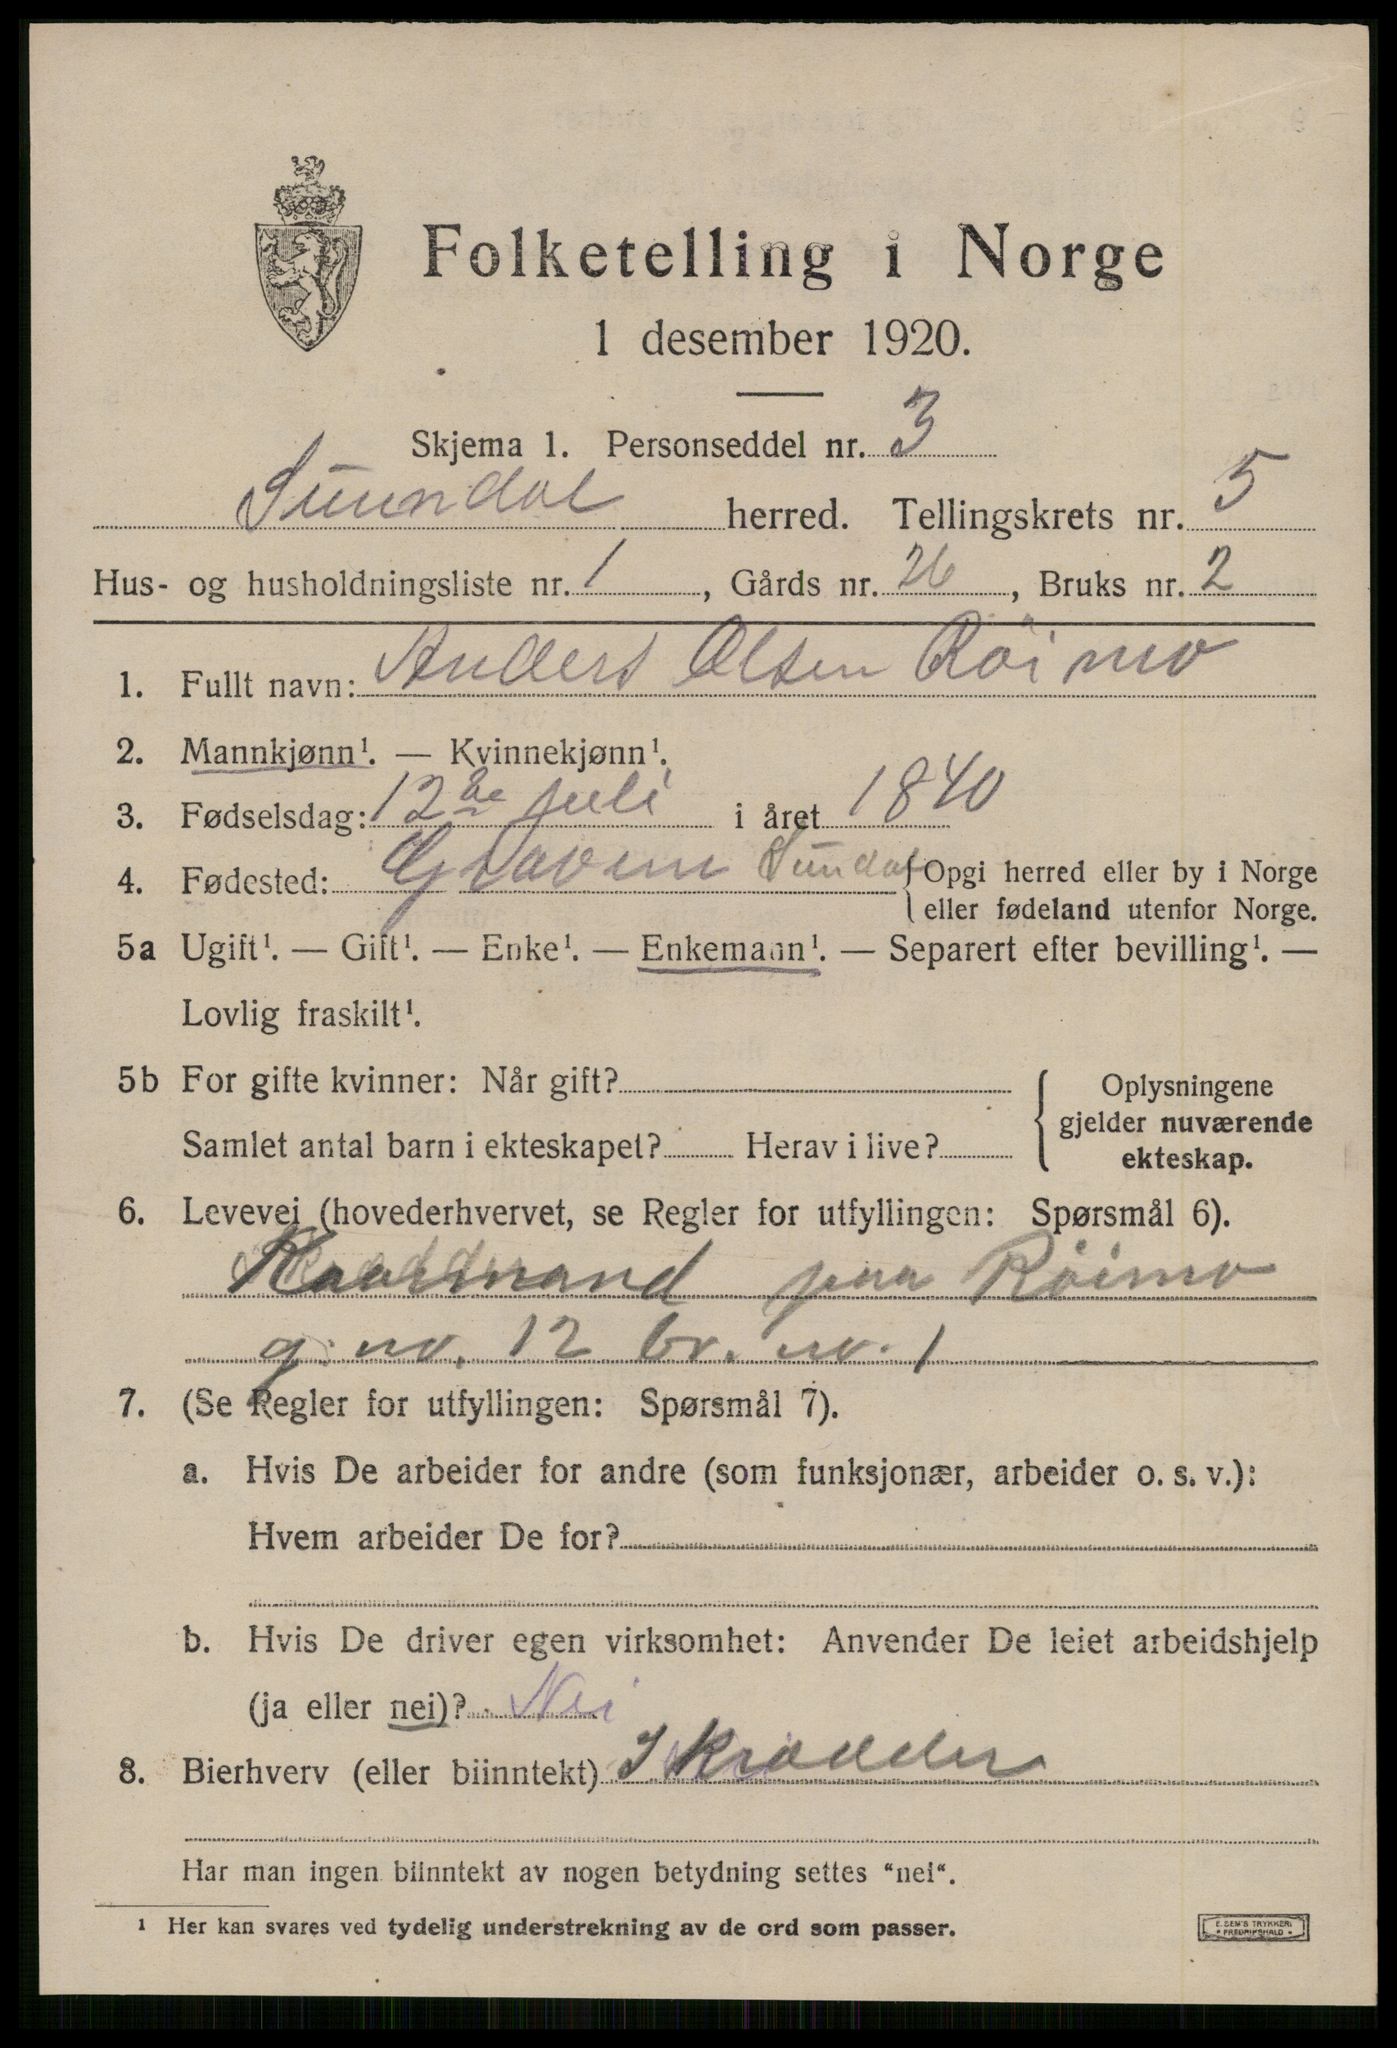 Folketelling i Norge
1 desember 1920.
Skjema 1. Personseddel nr. 3
Sunndal herred. Tellingskrets nr. 5
Hus- og husholdningsliste nr. 1, Gårds nr. 26, Bruks nr. 2
1. Fullt navn: Anders Olsen Röimo
2. Mannkjønn¹. — Kvinnekjønn¹.
3. Fødselsdag: 12te juli i året 1840
4. Fødested: Gravem Sundal { Opgi herred eller by i Norge
eller fødeland utenfor Norge.
5a Ugift¹. — Gift¹. — Enke¹. — Enkemann¹. — Separert efter bevilling¹. —
Lovlig fraskilt¹.
5b For gifte kvinner: Når gift?
Samlet antal barn i ekteskapet? Herav i live?
Oplysningene
gjelder nuværende
ekteskap.
6. Levevei (hovederhvervet, se Regler for utfyllingen: Spørsmål 6).
Kaarmand paa Röimo
g. nr. 12 br. nr. 1
7. (Se Regler for utfyllingen: Spørsmål 7).
a. Hvis De arbeider for andre (som funksjonær, arbeider o. s. v.):
Hvem arbeider De for?
b. Hvis De driver egen virksomhet: Anvender De leiet arbeidshjelp
(ja eller nei)? Nei
8. Bierhverv (eller biinntekt) Skradder
Har man ingen biinntekt av nogen betydning settes "nei".
1 Her kan svares ved tydelig understrekning av de ord som passer.
E. SEM'S TRYKKERI
• FREDRIKSHALD •